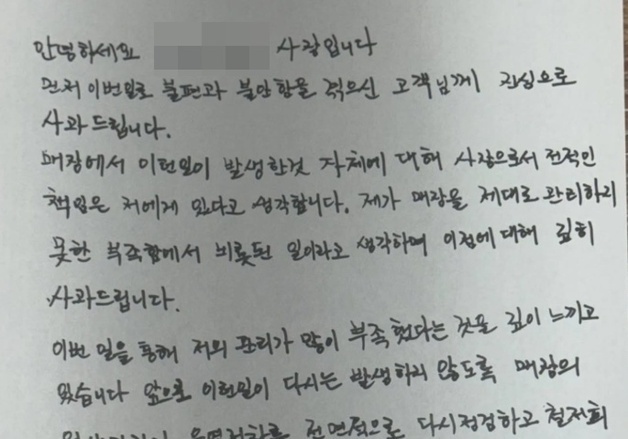 안녕하세요 사장입니다
먼저 이번일로 불편과 불안함을 겪으신 고객님께 진심으로
사과드립니다.
매장에서 이런일이 발생한것 자체에 대해 사장으로서 전적인
책임은 저에게 있다고 생각합니다. 제가 매장을 제대로 관리하지
못한 부족함에서 비롯된 일이라고 생각하며 이점에대해 깊히
사과드립니다.
이번 일을 통해 저의 관리가 많이 부족했다는 것을 깊이 느끼고
있습니다 앞으로 이런일이 다시는 발생하지 않도록 매장의
전면적으로 다시점검하고 철저히